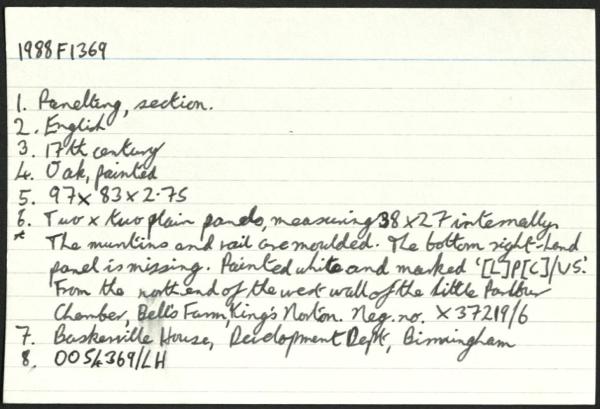 1988F1369
1. Panelling, section.
2. English
3. 17th century
4. Oak, painted
5. 97 x 83 x 2.75
6. Two x two plain panels, measuring 38 x 27 internally.
* The muntins and rail are moulded. The bottom right-hand
panel is missing. Painted white and marked '[L]P[C]/VS'.
From the north end of the west wall of the little Parlour
Chamber, Bell's Farm, King's Norton. Neg. no. X37219/6
7. Baskerville House, Development Dept, Birmingham
8. 0054369/LH